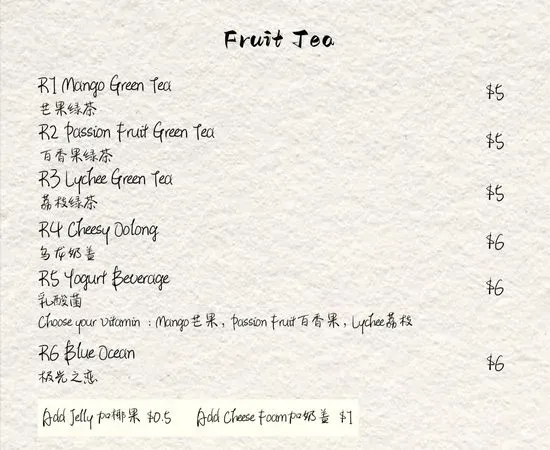 Fruit Tea
R1 Mango Green Tea $5
芒果绿茶
R2 Passion Fruit Green Tea $5
百香果绿茶
R3 Lychee Green Tea $5
荔枝绿茶
R4 Cheesy Oolong $6
乌龙奶盖
R5 Yogurt Beverage $6
乳酸菌
Choose your vitamin : Mango芒果, Passion Fruit百香果, Lychee荔枝
R6 Blue Ocean $6
极光之恋
Add Jelly 加椰果 $0.5 Add Cheese Foam加奶盖 $1